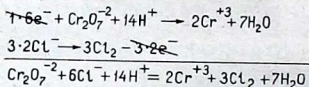 1·6e⁻ + Cr₂O₇⁻² + 14H⁺ → 2Cr⁺³ + 7H₂O
3·2Cl⁻ → 3Cl₂ - 3·2e⁻
Cr₂O₇⁻² + 6Cl⁻ + 14H⁺ = 2Cr⁺³ + 3Cl₂ + 7H₂O